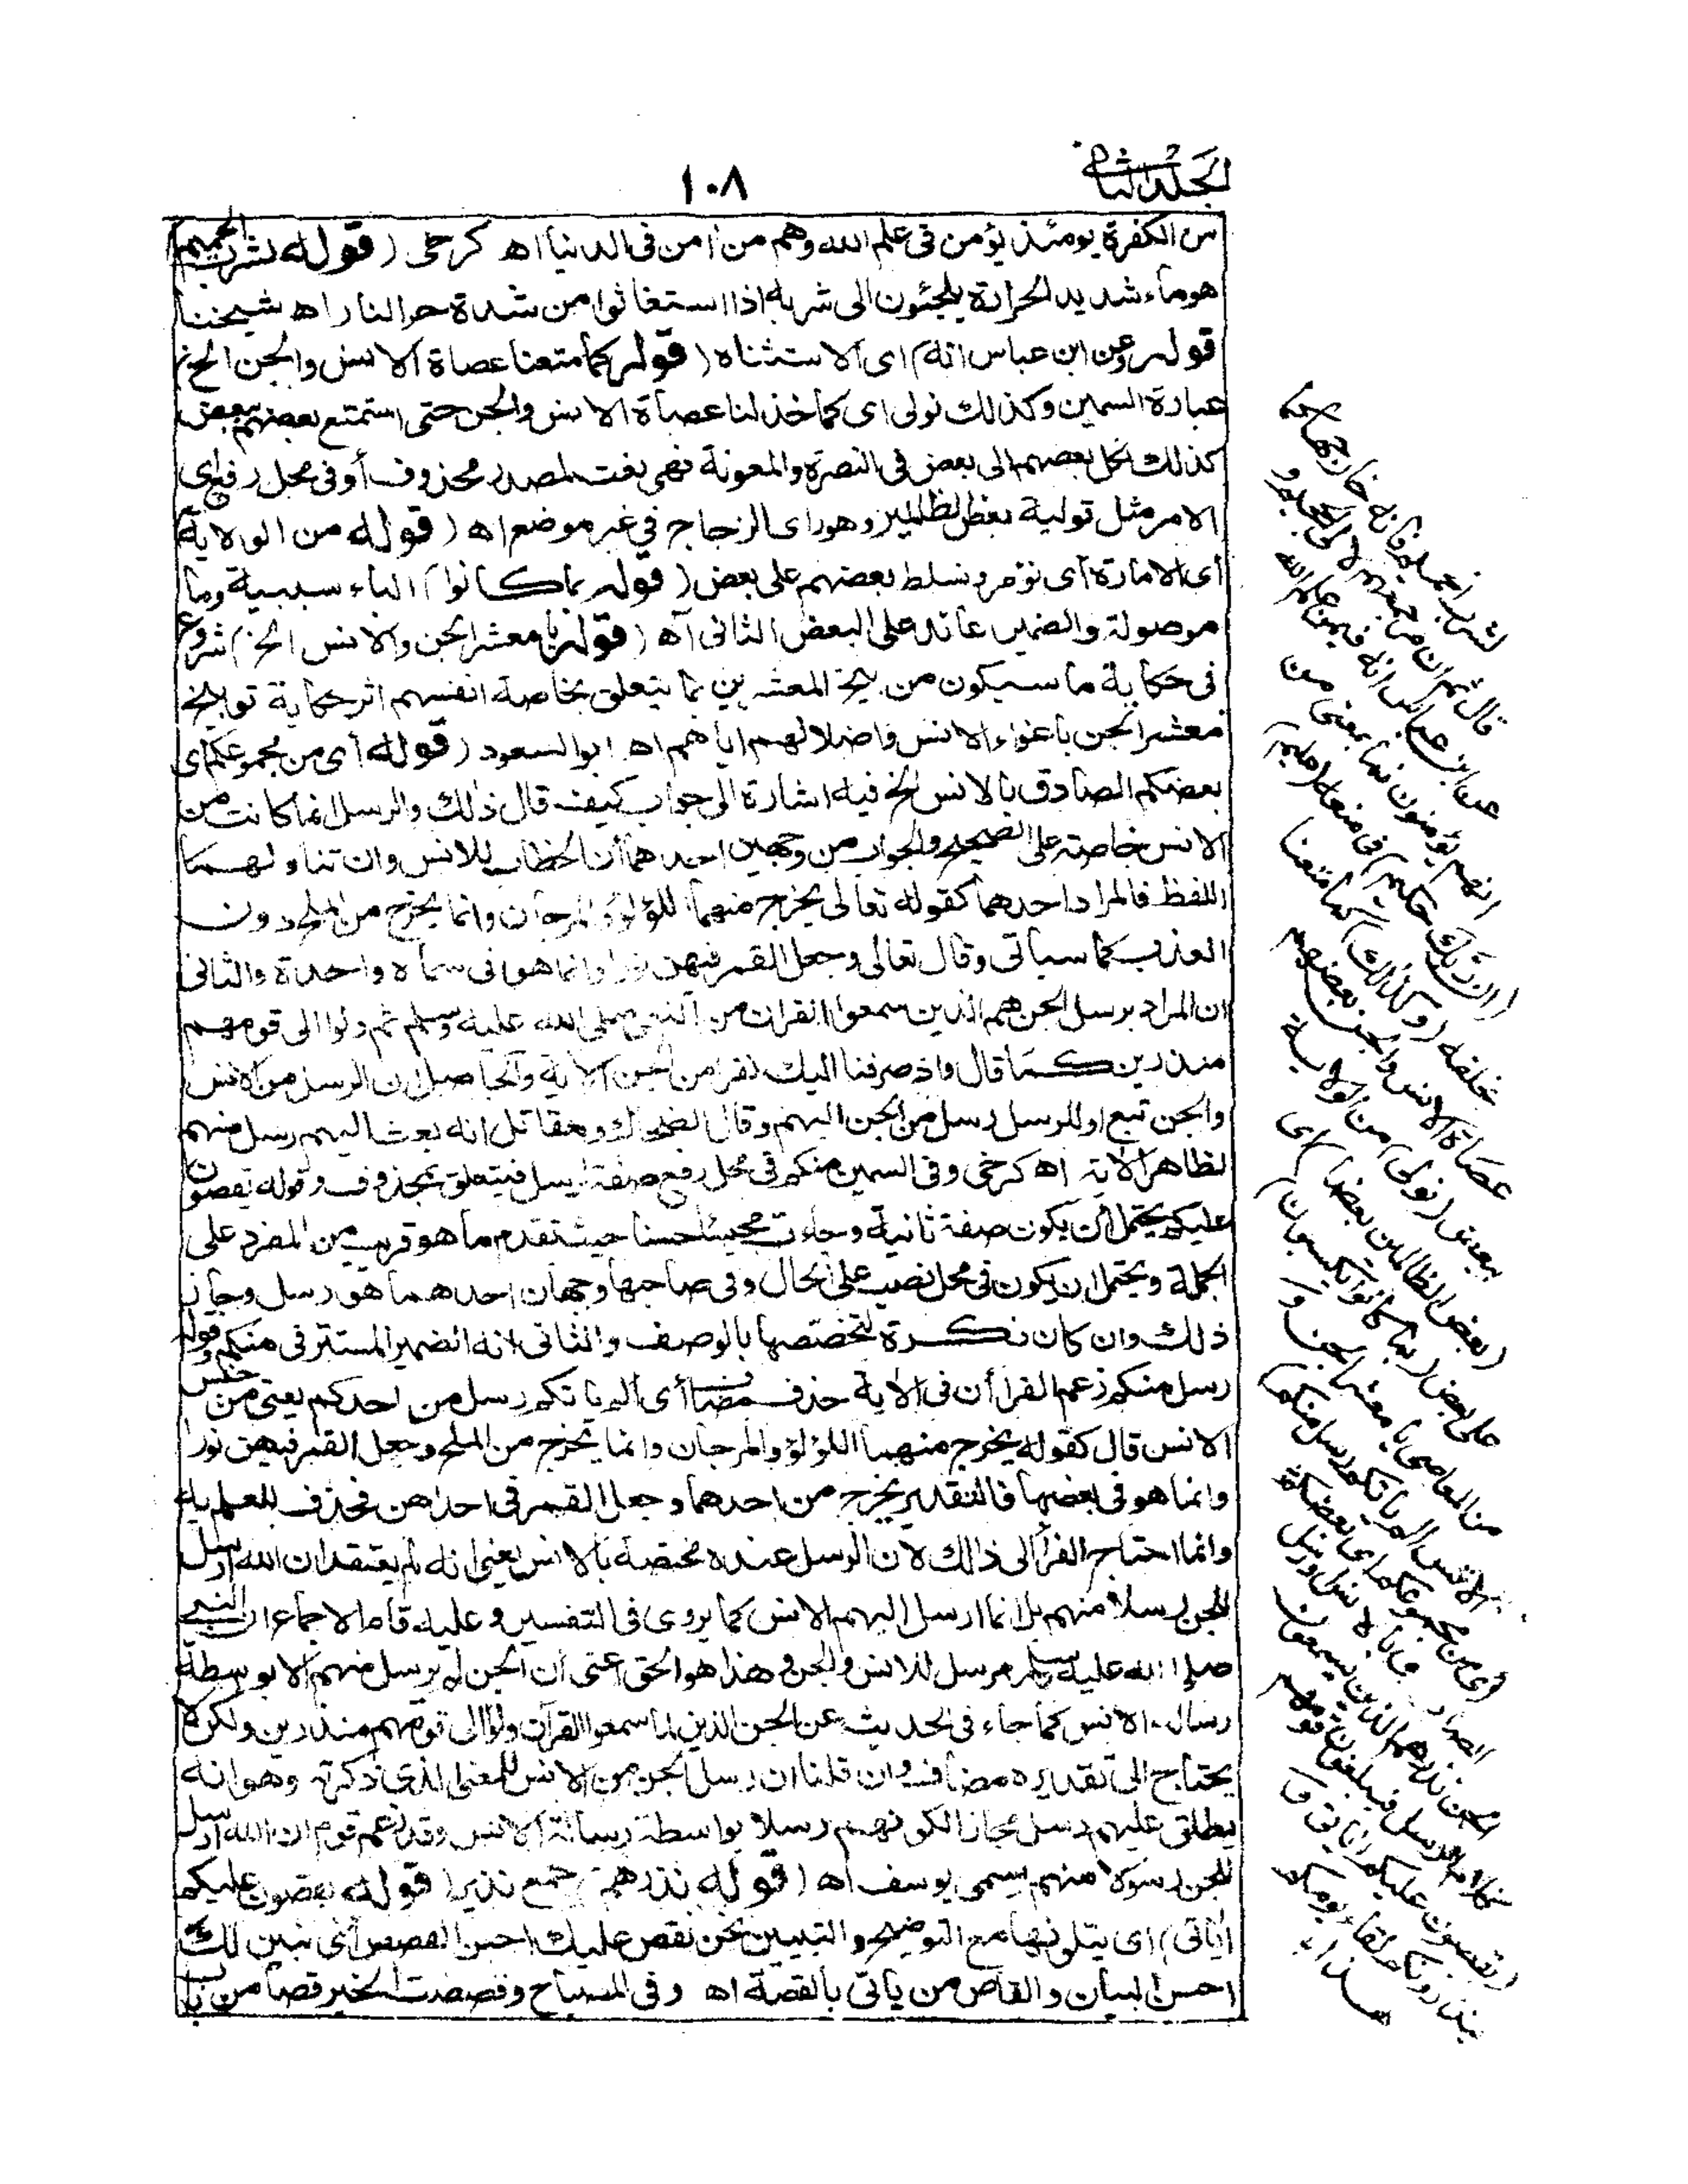 الجلد الثانی
١٠٨
من الكفرة يومئذ يؤمن فى علم الله وهم من اٰمن فى الدنيا اه كرخى (قوله لشرب الحميم)
هو ماء شديد الحرارة يلجئون الى شربه اذا استغاثوا من شدة حر النار اه شيخنا
قوله وعن ابن عباس انه) اى الاستثناء (قوله كما متعنا عصاة الانس والجن الخ)
عبارة السمين وكذلك نولى اى كما خذلنا عصاة الانس والجن حتى استمتع بعضهم ببعض
كذلك نكل بعضهم الى بعض فى النصرة والمعونة فهى نعت لمصدر محذوف أو فى محل رفع اى
الامر مثل تولية بعض الظلمين وهو راى الزجاج فى غير موضع اه (قوله من الولاية)
أى الامارة أى نؤمر ونسلط بعضهم على بعض (قوله بما كانوا) الباء سببية وما
موصولة والضمير عائد على البعض الثانى اه (قوله يا معشر الجن والانس الخ) شروع
فى حكاية ما سيكون من توبيخ المعشرين بما يتعلق بخاصة انفسهم اثر حكاية توبيخ
معشر الجن باغواء الانس واضلالهم اياهم اه ابو السعود (قوله أى من مجموعكم اى
بعضكم الصادق بالانس الخ فيه اشارة الى جواب كيف قال ذلك والرسل انما كانت من
الانس خاصة على الصحيح والجواب من وجهين احدهما أن الخطاب للانس وان تناولهما
اللفظ فالمراد احدهما كقوله تعالى يخرج منهما اللؤلؤ والمرجان وانما يخرج من الملح دون
العذب كما سياتى وقال تعالى وجعل القمر فيهن نورا وانما هو فى سماء واحدة والثانى
ان المراد برسل الجن هم الذين سمعوا القران من النبى صلى الله عليه وسلم ثم ولوا الى قومهم
منذرين كما قال واذ صرفنا اليك نفرا من الجن الآية والحاصل ان الرسل من الانس
والجن تبع او للرسل رسل من الجن اليهم وقال الضحاك ومقاتل انه بعث اليهم رسل منهم
لظاهر الاية اه كرخى وفى السمين منكم فى محل رفع صفة لرسل فيتعلق بمحذوف وقوله يقصون
عليكم يحتمل أن يكون صفة ثانية وجاءت مجيئا حسنا حيث تقدم ما هو قريب من المفرد على
الجملة ويحتمل ان يكون فى محل نصب على الحال وفى صاحبها وجهان احدهما هو رسل وجاز
ذلك وان كان نكرة لتخصصها بالوصف والثانى انه الضمير المستتر فى منكم وقوله
رسل منكم زعم الفرا أن فى الاية حذف مضاف أى الم ياتكم رسل من احدكم يعنى من جنس
الانس قال كقوله يخرج منهما اللؤلؤ والمرجان وانما يخرج من الملح وجعل القمر فيهن نورا
وانما هو فى بعضها فالتقدير يخرج من احدهما وجعل القمر فى احداهن فحذف للعلم به
وانما احتاج الفرأ الى ذالك لان الرسل عنده مختصة بالانس يعنى انه لم يعتقد ان الله ارسل
للجن رسلا منهم بل انما ارسل اليهم الانس كما يروى فى التفسير وعليه قام الاجماع ان النبى
صلى الله عليه وسلم مرسل للانس والجن وهذا هو الحق اعنى أن الجن لم يرسل منهم الا بوسطة
رسالة الانس كما جاء فى الحديث عن الجن الذين لما سمعوا القرآن ولوا الى قومهم منذرين ولكن لا
يحتاج الى تقديره مضاف وان قلنا ان رسل الجن من الانس للمعنى الذى ذكرته وهو انه
يطلق عليهم رسل مجازا لكونهم رسلا بواسطة رسالة الانس وقد زعم قوم ان الله ارسل
للجن رسولا منهم يسمى يوسف اه (قوله نذرهم) جمع نذير (قوله يقصون عليكم
اٰياتى) اى يتلونها مع التوضيح والتبيين نحن نقص عليك احسن القصص أى نبين لك
احسن البيان والقاص من ياتى بالقصة اه وفى المصباح وقصصت الخبر قصا من باب
لشرب الحميم فانه خارجها كما
قال ثم ان مرجعهم لالى الجحيم و
عن ابن عباس انه فيمن علم الله
انهم يؤمنون فما بمعنى من
(ان ربك حكيم) فى صنعه (عليم)
بخلقه (وكذلك) كما متعنا
عصاة الانس والجن بعضهم
ببعض (نولى) من الولاية
(بعض الظالمين بعضا) اى
على بعض (بما كانوا يكسبون)
من المعاصى يا معشر الجن و
الانس الم ياتكم رسل منكم)
اى من مجموعكم اى بعضكم
الصادق بالانس او رسل
الجن نذرهم الذين يسمعون
كلام الرسل فيبلغون قومهم
(يقصون عليكم اياتى و
ينذرونكم لقاء يومكم
هذا